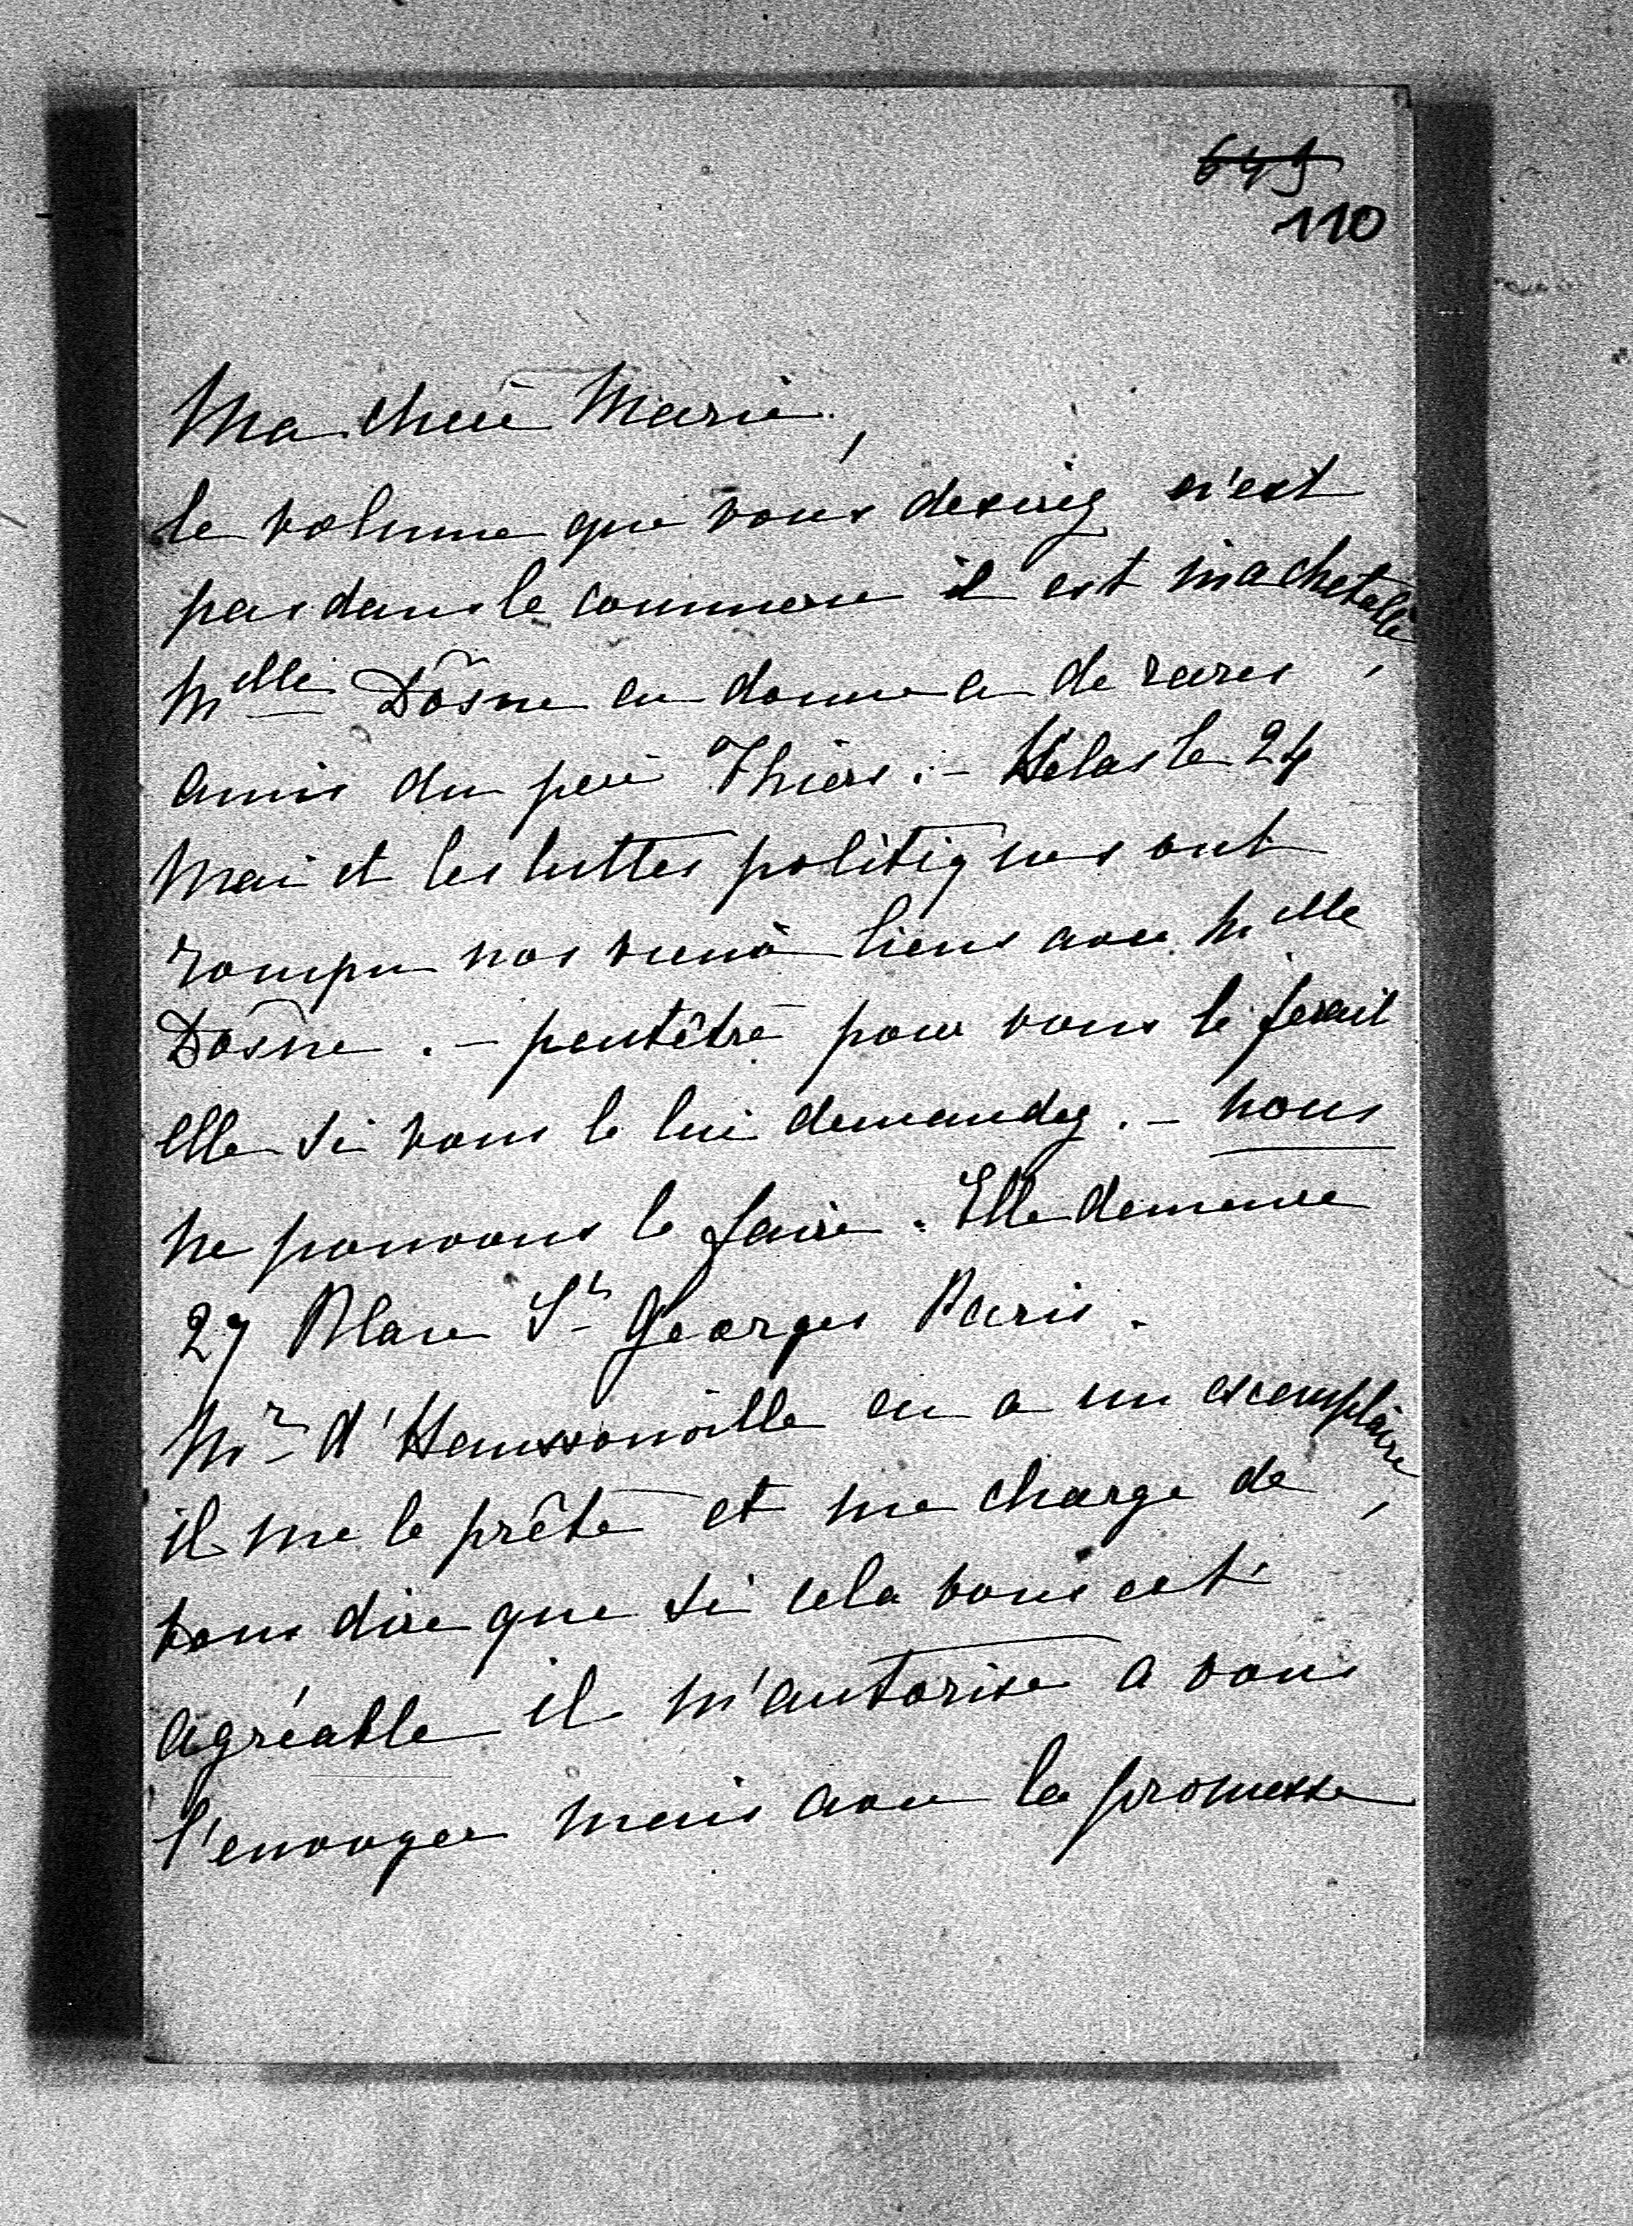 649
110
Ma chère Marie,
le volume que vous desirez n'est
pas dans le commerce il est inachetable,
Melle Dosne en donne a de rares
amis du père Thiers. - Hélas le 24
Mai et les luttes politiques ont
rompu nos vieux liens avec Melle
Dosne. - peutêtre pour vous le ferait
elle si vous le lui demandez. - nous
ne pouvons le faire. Elle demeure
27 Place St Georges Paris.
Mr d'Haussonville en a un exemplaire,
il me le prête et me charge de
vous dire que si cela vous est
agréable il m'autorise a vous
l'envoyer mais avec la promesse